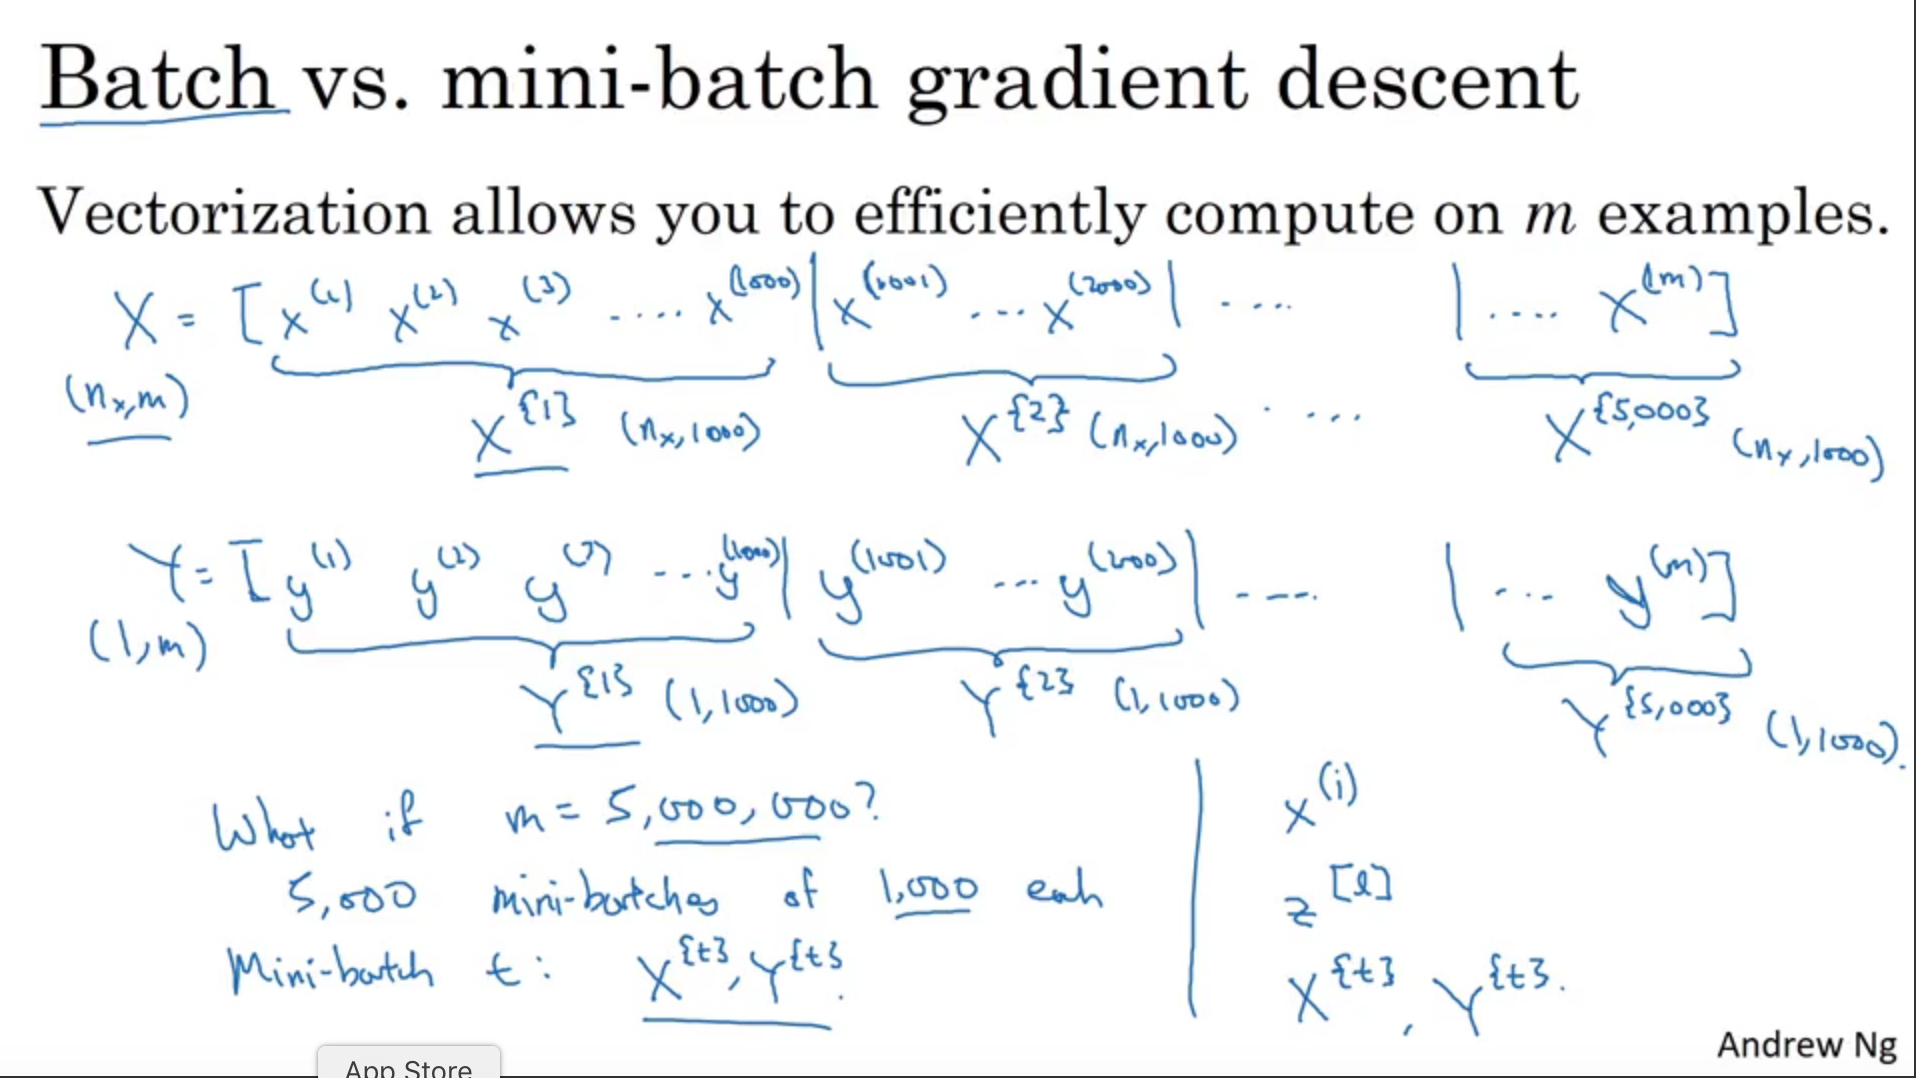 Batch vs. mini-batch gradient descent
Vectorization allows you to efficiently compute on m examples.
X = [x^(1) x^(2) x^(3) ..... x^(1000) | x^(1001) ... x^(2000) | .... | .... x^(m)]
(n_x,m)
X^{1} (n_x,1000) X^{2} (n_x,1000) .... X^{5,000} (n_x,1000)
Y = [y^(1) y^(2) y^(3) ... y^(1000) | y^(1001) ... y^(2000) | .... | ... y^(m)]
(1,m)
Y^{1} (1,1000) Y^{2} (1,1000) Y^{5,000} (1,1000).
What if m = 5,000,000?
5,000 mini-batches of 1,000 each
Mini-batch t: X^{t}, Y^{t}.
x^(i)
z^[l]
X^{t}, Y^{t}.
Andrew Ng
App Store